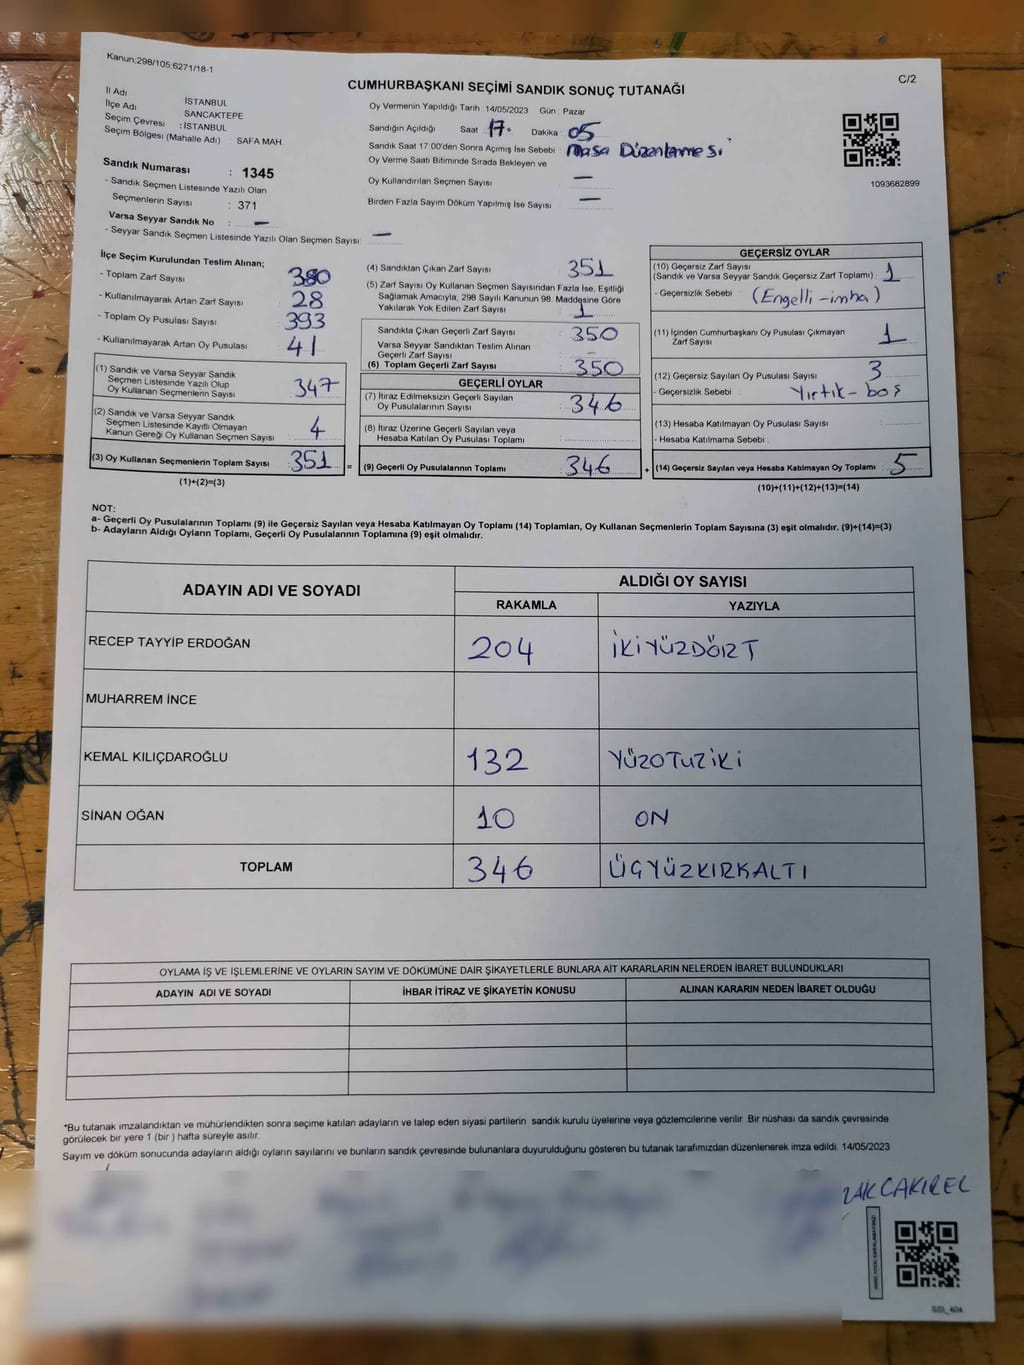 Kanun:298/105;6271/18-1
C/2
CUMHURBAŞKANI SEÇİMİ SANDIK SONUÇ TUTANAĞI
İl Adı : İSTANBUL
İlçe Adı SANCAKTEPE
Seçim Çevresi : İSTANBUL
Seçim Bölgesi (Mahalle Adı) SAFA MAH.
Sandık Numarası : 1345
- Sandık Seçmen Listesinde Yazılı Olan
Seçmenlerin Sayısı : 371
Varsa Seyyar Sandık No : —
- Seyyar Sandık Seçmen Listesinde Yazılı Olan Seçmen Sayısı: —
Oy Vermenin Yapıldığı Tarih 14/05/2023 Gün : Pazar
Sandığın Açıldığı Saat 17. Dakika 05
Sandık Saat 17:00'den Sonra Açımış İse Sebebi : Masa Düzenlemesi
Oy Verme Saati Bitiminde Sırada Bekleyen ve
Oy Kullandırılan Seçmen Sayısı —
Birden Fazla Sayım Döküm Yapılmış İse Sayısı —
1093682899
İlçe Seçim Kurulundan Teslim Alınan;
- Toplam Zarf Sayısı 380
- Kullanılmayarak Artan Zarf Sayısı 28
- Toplam Oy Pusulası Sayısı 393
- Kullanılmayarak Artan Oy Pusulası 41
(1) Sandık ve Varsa Seyyar Sandık
Seçmen Listesinde Yazılı Olup
Oy Kullanan Seçmenlerin Sayısı 347
(2) Sandık ve Varsa Seyyar Sandık
Seçmen Listesinde Kayıtlı Olmayan
Kanun Gereği Oy Kullanan Seçmen Sayısı 4
(3) Oy Kullanan Seçmenlerin Toplam Sayısı 351
(1)+(2)=(3)
(4) Sandıktan Çıkan Zarf Sayısı 351
(5) Zarf Sayısı Oy Kullanan Seçmen Sayısından Fazla İse, Eşitliği
Sağlamak Amacıyla; 298 Sayılı Kanunun 98. Maddesine Göre
Yakılarak Yok Edilen Zarf Sayısı 1
Sandıkta Çıkan Geçerli Zarf Sayısı 350
Varsa Seyyar Sandıktan Teslim Alınan
Geçerli Zarf Sayısı
(6) Toplam Geçerli Zarf Sayısı 350
GEÇERLİ OYLAR
(7) İtiraz Edilmeksizin Geçerli Sayılan
Oy Pusulalarının Sayısı 346
(8) İtiraz Üzerine Geçerli Sayılan veya
Hesaba Katılan Oy Pusulası Toplamı
= (9) Geçerli Oy Pusulalarının Toplamı 346 +
GEÇERSİZ OYLAR
(10) Geçersiz Zarf Sayısı
(Sandık ve Varsa Seyyar Sandık Geçersiz Zarf Toplamı) : 1
- Geçersizlik Sebebi (Engelli - imha)
(11) İçinden Cumhurbaşkanı Oy Pusulası Çıkmayan
Zarf Sayısı 1
(12) Geçersiz Sayılan Oy Pusulası Sayısı 3
- Geçersizlik Sebebi Yırtık - boş
(13) Hesaba Katılmayan Oy Pusulası Sayısı
- Hesaba Katılmama Sebebi
(14) Geçersiz Sayılan veya Hesaba Katılmayan Oy Toplamı 5
(10)+(11)+(12)+(13)=(14)
NOT:
a- Geçerli Oy Pusulalarının Toplamı (9) ile Geçersiz Sayılan veya Hesaba Katılmayan Oy Toplamı (14) Toplamları, Oy Kullanan Seçmenlerin Toplam Sayısına (3) eşit olmalıdır. (9)+(14)=(3)
b- Adayların Aldığı Oyların Toplamı, Geçerli Oy Pusulalarının Toplamına (9) eşit olmalıdır.
ADAYIN ADI VE SOYADI
ALDIĞI OY SAYISI
RAKAMLA YAZIYLA
RECEP TAYYİP ERDOĞAN 204 İKİYÜZDÖRT
MUHARREM İNCE
KEMAL KILIÇDAROĞLU 132 YÜZOTUZİKİ
SİNAN OĞAN 10 ON
TOPLAM 346 ÜÇYÜZKIRKALTI
OYLAMA İŞ VE İŞLEMLERİNE VE OYLARIN SAYIM VE DÖKÜMÜNE DAİR ŞİKAYETLERLE BUNLARA AİT KARARLARIN NELERDEN İBARET BULUNDUKLARI
ADAYIN ADI VE SOYADI İHBAR İTİRAZ VE ŞİKAYETİN KONUSU ALINAN KARARIN NEDEN İBARET OLDUĞU
*Bu tutanak imzalandıktan ve mühürlendikten sonra seçime katılan adayların ve talep eden siyasi partilerin sandık kurulu üyelerine veya gözlemcilerine verilir. Bir nüshası da sandık çevresinde
görülecek bir yere 1 (bir ) hafta süreyle asılır.
Sayım ve döküm sonucunda adayların aldığı oyların sayılarını ve bunların sandık çevresinde bulunanlara duyurulduğunu gösteren bu tutanak tarafımızdan düzenlenerek imza edildi. 14/05/2023